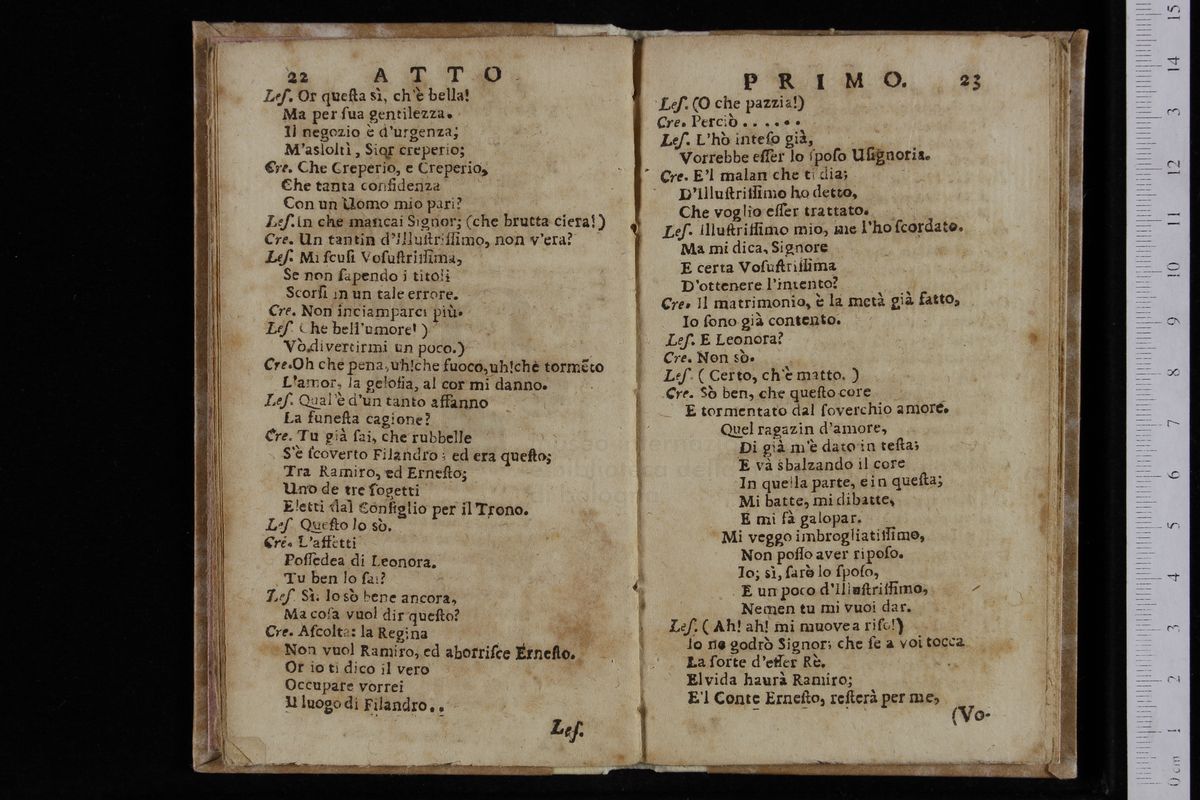 22 ATTO
Leſ. Or queſta sì, ch'è bella!
Ma per ſua gentilezza.
Il negozio è d'urgenza;
M'aſloltì, Sior creperio;
Cre. Che Creperio, e Creperio,
Che tanta confidenza
Con un Uomo mio pari?
Leſ.In che mancai Signor; (che brutta ciera!)
Cre. Un tantin d'Illuſtriſſimo, non v'era?
Leſ. Mi ſcuſi Voſuſtriſſima,
Se non ſapendo i titoli
Scorſi in un tale errore.
Cre. Non inciamparci più.
Leſ. (he bell'umore!)
Vò divertirmi un poco.)
Cre.Oh che pena, uh!che fuoco, uh!chè tormẽto
L'amor, la geloſia, al cor mi danno.
Leſ. Qual'è d'un tanto affanno
La funeſta cagione?
Cre. Tu già ſai, che rubbelle
S'è ſcoverto Filandro; ed era queſto;
Tra Ramiro, ed Erneſto;
Uno de tre ſogetti
Eletti dal Conſiglio per il Trono.
Leſ. Queſto lo sò.
Cre. L'affetti
Poſſedea di Leonora.
Tu ben lo ſai?
Leſ. Sì. lo sò bene ancora,
Ma coſa vuol dir queſto?
Cre. Aſcolta: la Regina
Non vuol Ramiro, ed aborriſce Erneſto.
Or io ti dico il vero
Occupare vorrei
Il luogo di Filandro..
Leſ.
PRIMO. 23
Leſ. (O che pazzia!)
Cre. Perciò ......
Leſ. L'hò inteſo già,
Vorrebbe eſſer lo ſpoſo Uſignoria.
Cre. E'l malan che ti dia;
D'Illuſtriſſimo ho detto,
Che voglio eſſer trattato.
Leſ. Illuſtriſſimo mio, me l'ho ſcordato.
Ma mi dica, Signore
E certa Voſuſtriſſima
D'ottenere l'intento?
Cre. Il matrimonio, è la metà già fatto,
Io ſono già contento.
Leſ. E Leonora?
Cre. Non sò.
Leſ. ( Certo, ch'è matto. )
Cre. Sò ben, che queſto core
E tormentato dal ſoverchio amore.
Quel ragazin d'amore,
Di già m'è dato in teſta;
E và sbalzando il core
In quella parte, e in queſta;
Mi batte, mi dibatte,
E mi fà galopar.
Mi veggo imbrogliatiſſimo,
Non poſſo aver ripoſo.
Io; sì, ſarò lo ſpoſo,
E un poco d'Illuſtriſſimo,
Nemen tu mi vuoi dar.
Leſ. ( Ah! ah! mi muove a riſo!)
Io ne godrò Signor; che ſe a voi tocca
La ſorte d'eſſer Rè.
Elvida haurà Ramiro;
E'l Conte Erneſto, reſterà per me,
(Vo-